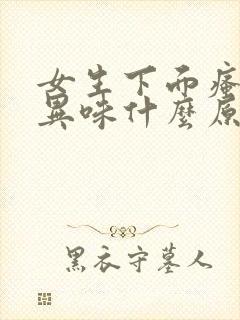 女生下面瘙
異味什麼原
黑衣守墓人